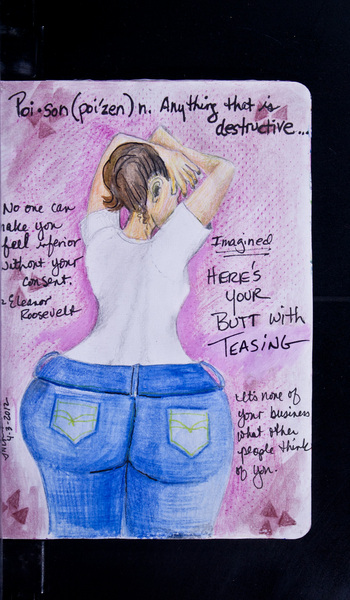 Poi•son (poi'zen) n. Anything that is
destructive...
No one can
make you
feel inferior
without your
consent.
Eleanor
Roosevelt
Imagined
HERE'S
YOUR
BUTT with
TEASING
It's none of
your business
what other
people think
of you.
4-3-2012